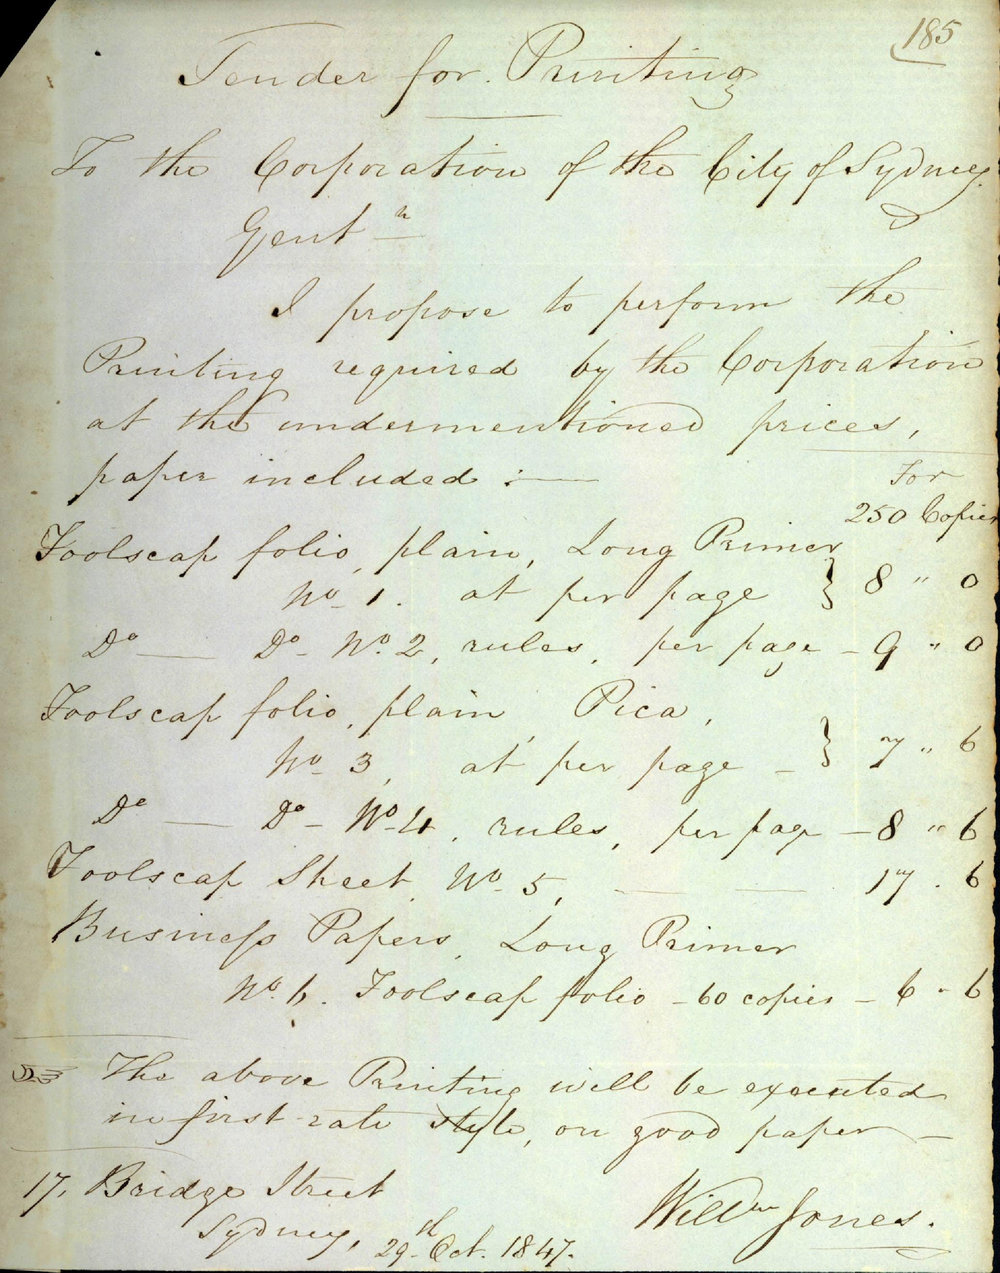 185
Tender for Printing
To the Corporation of the City of Sydney.
Gentn
I propose to perform the
Printing required by the Corporation
at the undermentioned prices,
paper included :—
For
250 Copies
Foolscap folio, plain, Long Primer
No. 1. at per page } 8 " 0
Do — Do - No. 2, rules, per page - 9 " 0
Foolscap folio, plain, Pica,
No. 3, at per page - } 7 " 6
Do — Do - No. 4, rules, per page - 8 " 6
Foolscap Sheet, No. 5, — — 17 . 6
Business Papers, Long Primer
No. 6. Foolscap folio - 60 copies - 6 " 6
☞ The above Printing will be executed
in first-rate style, on good paper —
17, Bridge Street
Willm Jones.
Sydney, 29th Oct. 1847.